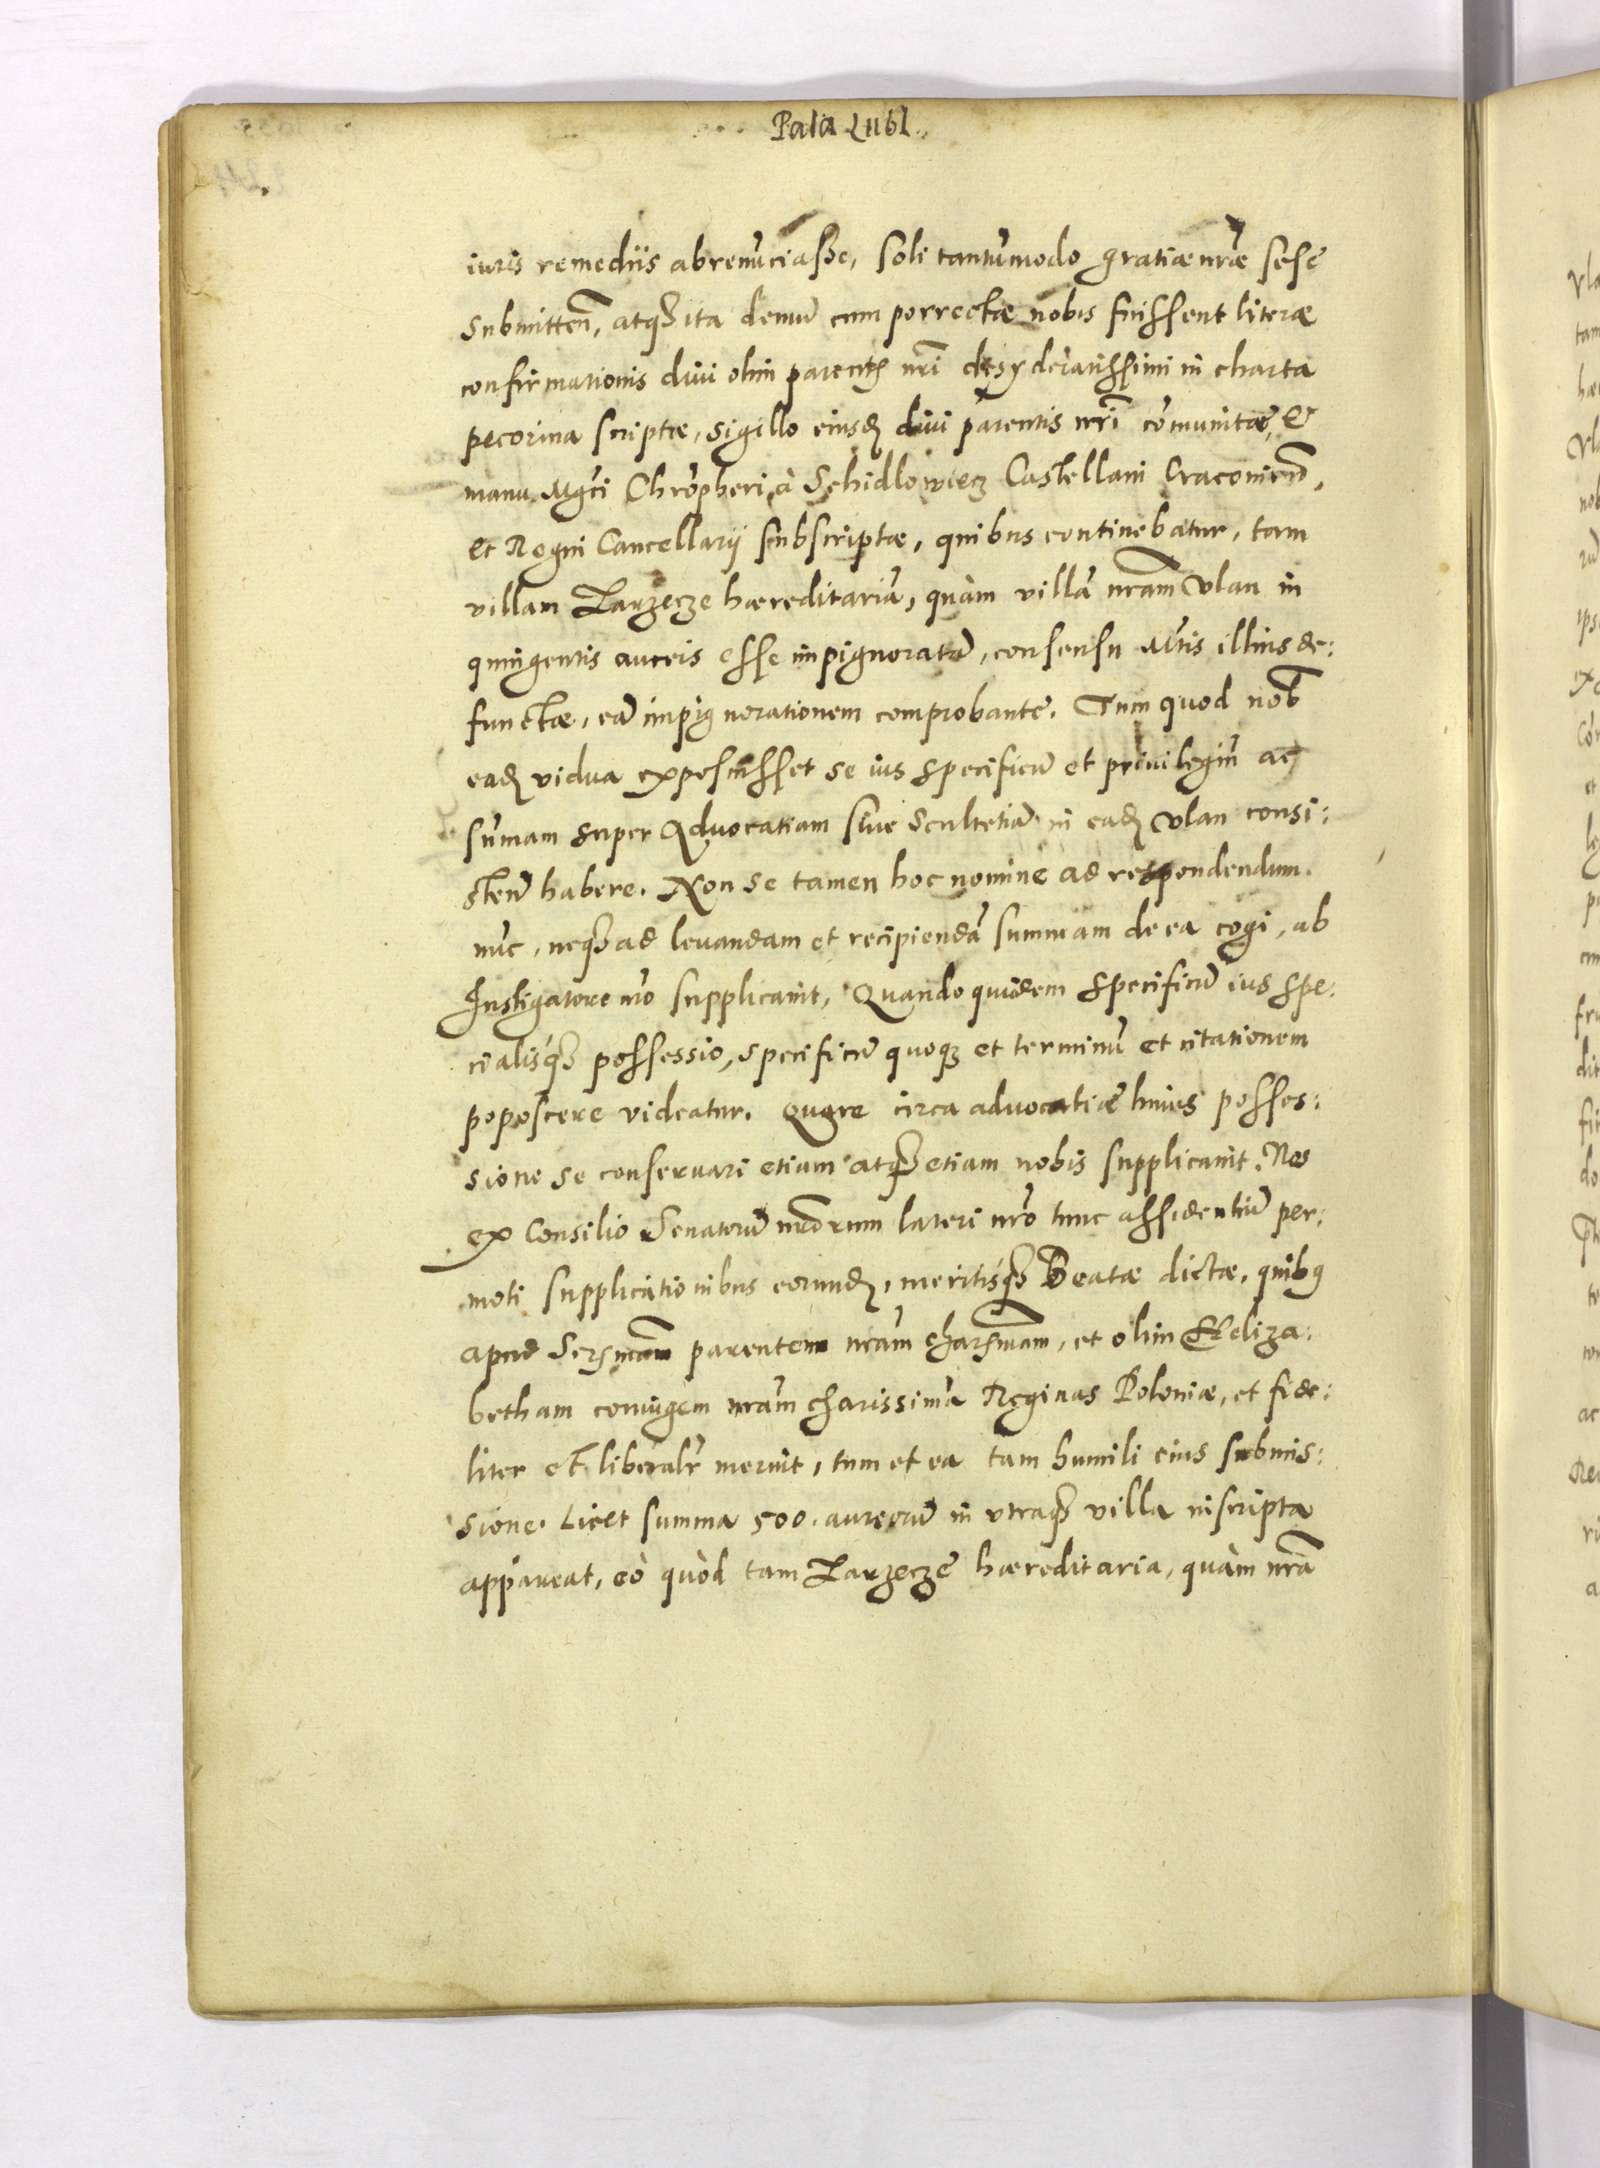 Pala Lubl.
iuris remediis abrenūciasse, soli tantūmodo gratiæ nr̃æ sese
submitteñ, atq₃ ita demū cum porrectæ nobis fuissent literæ
confirmationis diui olim parentis nr̃i desyderatissimi in charta
pecorina scriptæ, sigillo eiusd. diui parentis nr̃i cōmunitæ, et
manu Mgci Chrōpheri à Schidlowiecz Castellani Cracovieñ,
et Regni Cancellarij subscriptæ, quibus continebatur, tam
villam Zarzecze hæreditariā, quàm villā nr̃am Vlan in
quingentis aureis esse impignoratā, consensu Mtis illius de:
functæ, eā impignorationem comprobante. Tum quod nob
ead. vidua exposuisset se ius specificū et priuilegiū ac
sūmam super Aduocatiam siue Scultetiā in ead. Vlan consi:
stenˉ habere. Non se tamen hoc nomine ad respondendum
nūc, neq₃ ad leuandam et recipiendā summam de ea cogi, ab
Instigatore nr̃o supplicauit, Quando quidem specificū ius spe:
cialisq₃ possessio, specificū quoq₃ et terminū et citationem
poposcere videatur. Quare circa aduocatiæ huius posses:
sione se conseruari etiam atq₃ etiam nobis supplicauit. Nos
ex Consilio Senatorū nr̃orum lateri nr̃o tunc assidentiū per:
moti supplicationibus eorund., meritisq₃ Beatæ dictæ, quib9
apud Sersmam parentem nr̃am charsmam, et olim Heliza:
betham coniugem nr̃am charissimā Reginas Poloniæ, et fide:
liter et liberalr̃ meruit, tum et ea tam humili eius submis:
sione. Licet summa 500. aureorū in vtraq₃ villa inscripta
appareat, eò quòd tam Zarzecze hæreditaria, quàm nr̃a